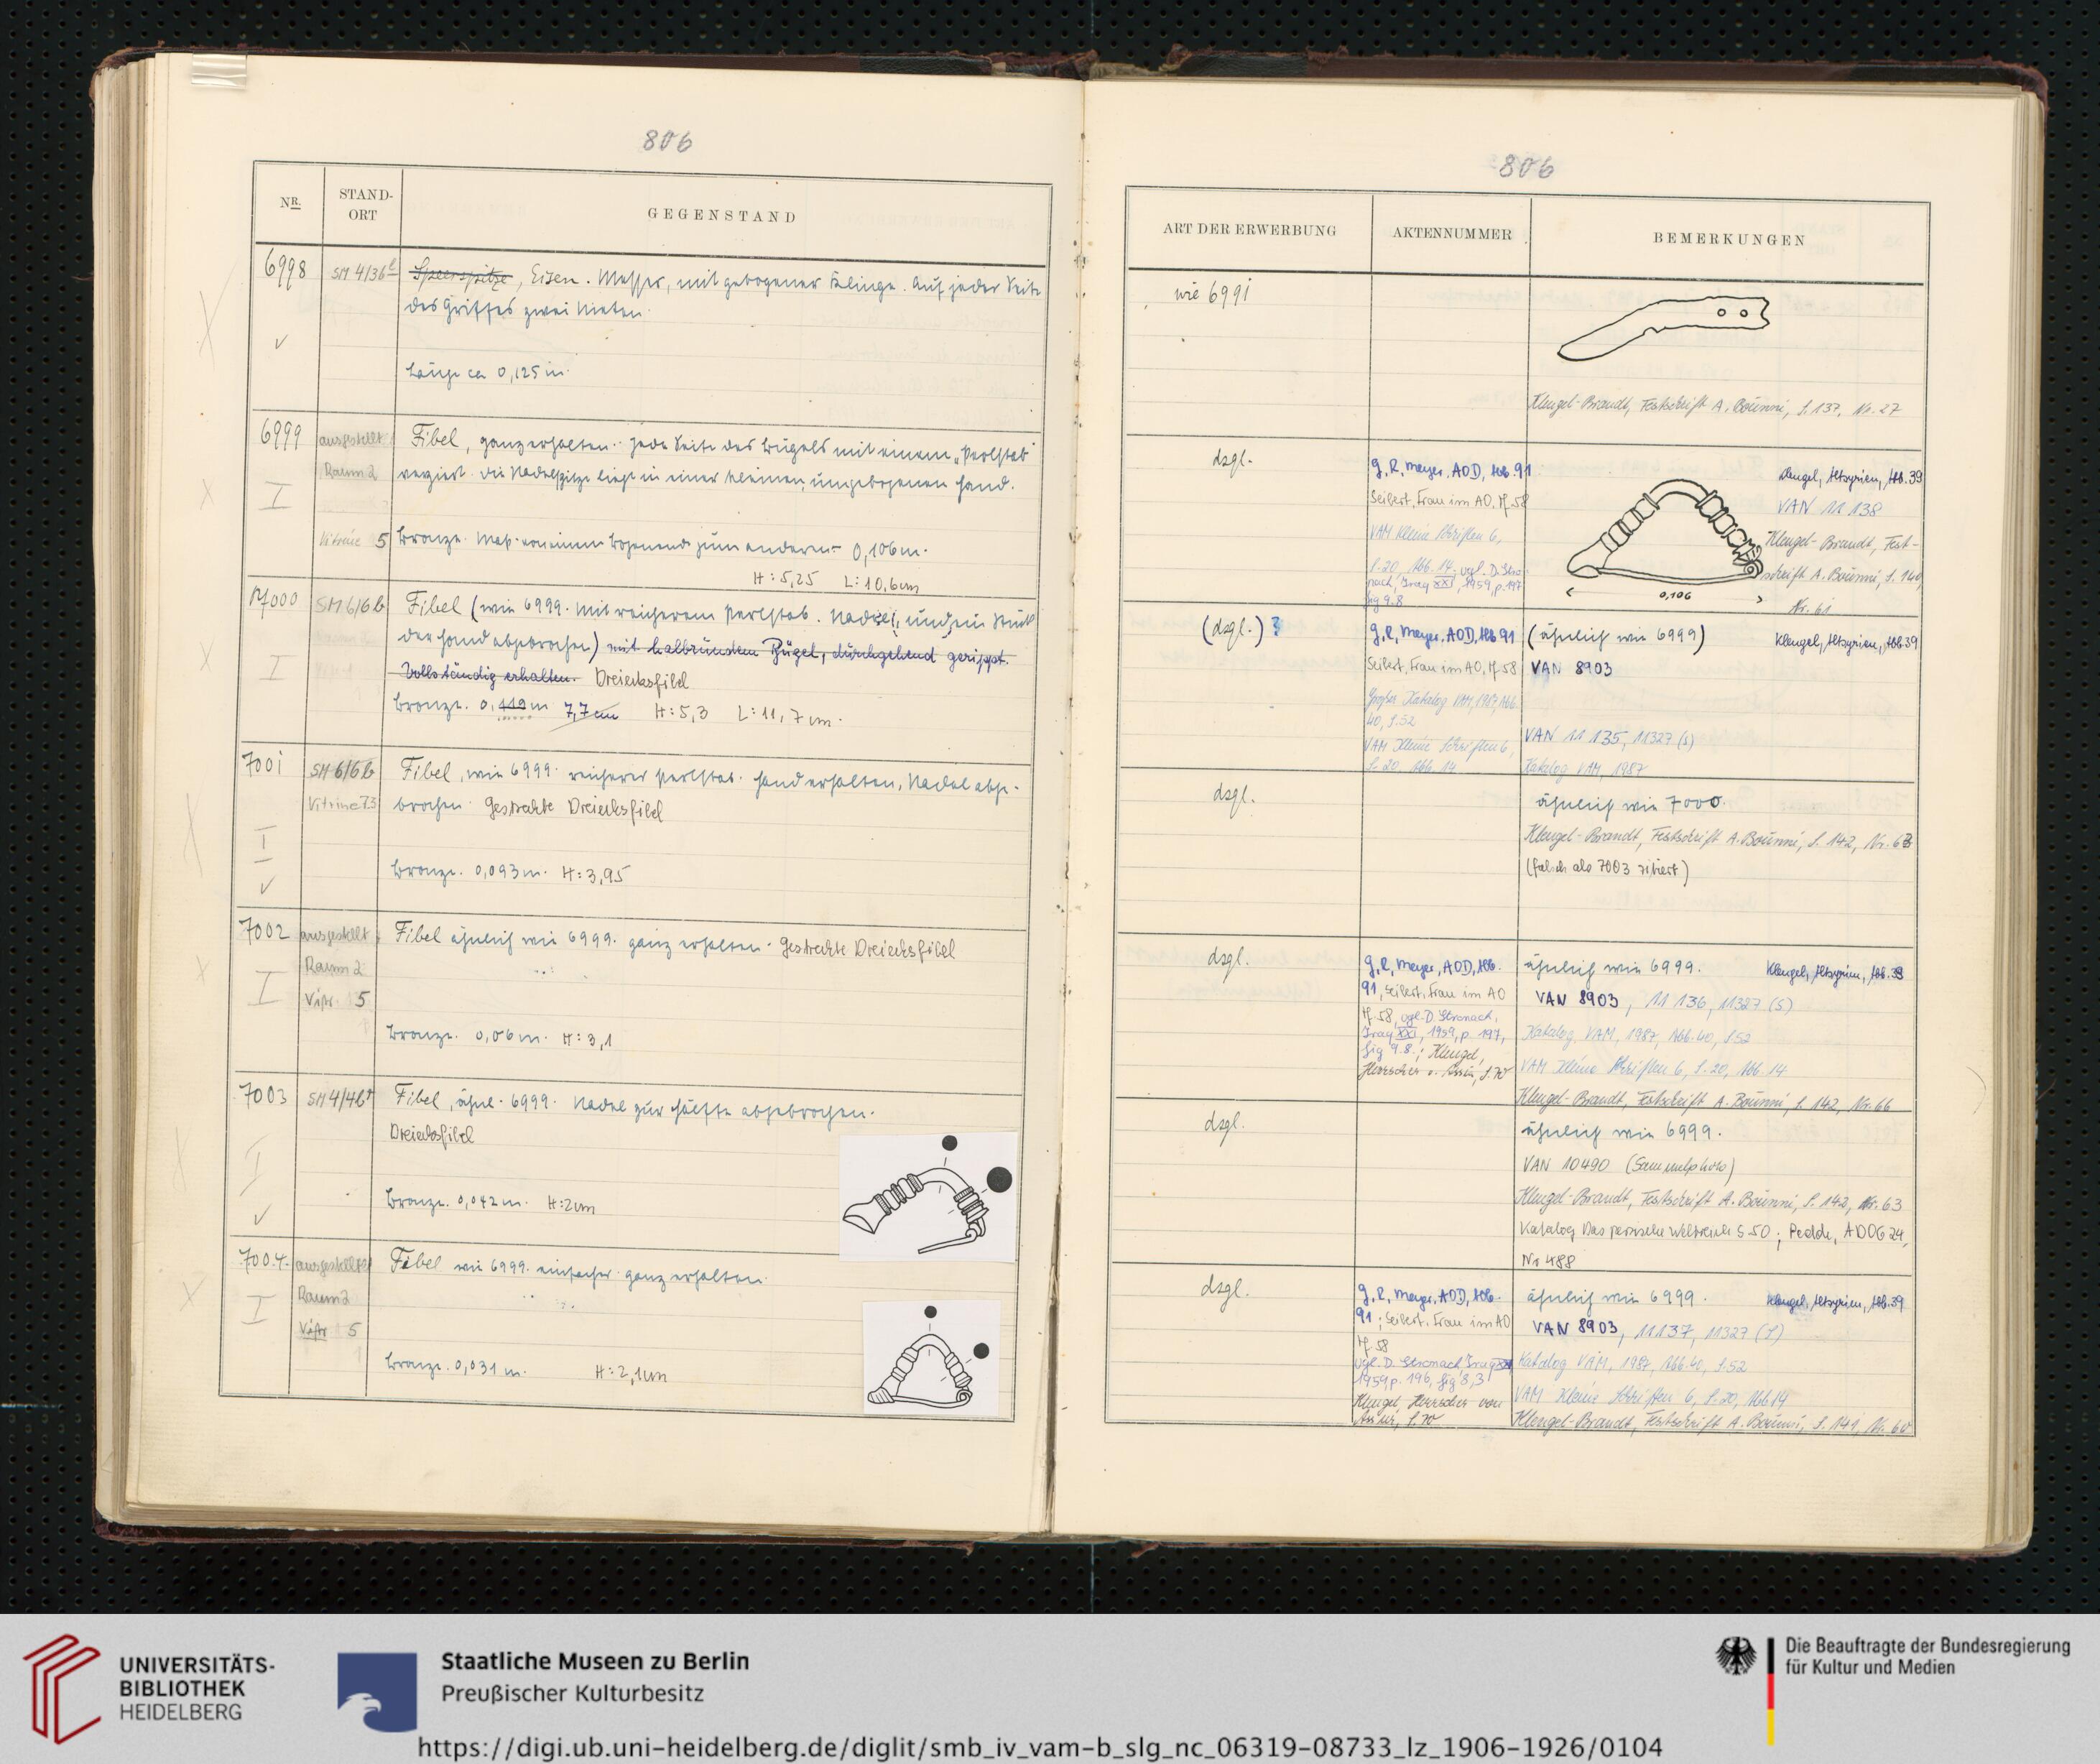 806
NR.
STAND-
ORT
GEGENSTAND
6998
SM 4/36
Speerspitze, Eisen. Messer, mit gebogener Klinge. Auf jeder Seite
des Griffes zwei Nieten.
Länge ca 0,125 m.
6999
ausgestellt
Raum 2
I
Vitrine 5
Fibel, ganz erhalten. Jede Seite des Bügels mit einem „Perlstab"
verziert. Die Nadelspitze liegt in einer kleinen, umgebogenen Hand.
Bronze. Maß von einem Bogenende zum andern = 0,106 m.
H: 5,25 L: 10,6 cm
7000
SM 6/6 b
I
Fibel (wie 6999. Mit reicherem Perlstab. Nadel, und ein Stück
der Hand abgebrochen) mit halbrundem Bügel, durchgehend gerippt.
Vollständig erhalten. Dreiecksfibel
Bronze. 0,119 m 7,7 cm H: 5,3 L: 11,7 cm.
7001
SM 6/6 b
Vitrine 73
I
Fibel, wie 6999. reicherer Perlstab. Hand erhalten, Nadel abge-
brochen. Gestreckte Dreiecksfibel
Bronze. 0,093 m. H: 3,95
7002
ausgestellt
Raum 2
I
Vitr. 5
Fibel ähnlich wie 6999. ganz erhalten. Gestreckte Dreiecksfibel
Bronze. 0,06 m. H: 3,1
7003
SM 4/4b
I
Fibel, ähnl. 6999. Nadel zur Hälfte abgebrochen.
Dreiecksfibel
Bronze. 0,042 m. H: 2 cm
7004.
ausgestellt
Raum 2
I
Vitr 5
Fibel wie 6999. einfacher. ganz erhalten.
Bronze. 0,031 m. H: 2,1 cm
806
ART DER ERWERBUNG
AKTENNUMMER
BEMERKUNGEN
wie 6991
Klengel-Brandt, Festschrift A. Bounni, S. 137, Nr. 27
dsgl.
G. R. Meyer, AOD, Abb. 91
Seibert, Frau im AO, Tf. 58
VAM Kleine Schriften 6,
S. 20, Abb. 14; vgl. D. Stro-
nach, Iraq XXI, 1959, p. 197
fig 9.8
Klengel, Altsyrien, Abb. 39
VAN 11 138
Klengel-Brandt, Fest-
schrift A. Bounni, S. 140,
Nr. 61
0,106
(dsgl.) ?
G. R. Meyer, AOD, Abb 91
Seibert, Frau im AO, Tf 58
Großer Katalog VAM, 1987, Abb.
40, S. 52
VAM Kleine Schriften 6,
S. 20, Abb. 14
(ähnlich wie 6999)
Klengel, Altsyrien, Abb 39
VAN 8903
VAN 11 135, 11327 (S)
Katalog VAM, 1987
dsgl.
ähnlich wie 7000.
Klengel-Brandt, Festschrift A. Bounni, S. 142, Nr. 63
(falsch als 7003 zitiert)
dsgl.
G. R. Meyer, AOD, Abb.
91, Seibert, Frau im AO
Tf. 58, vgl. D. Stronach,
Iraq XXI, 1959, p. 197,
fig 9.8.; Klengel,
Herrscher v. Assur, S. 70
ähnlich wie 6999.
Klengel, Altsyrien, Abb. 39
VAN 8903, 11 136, 11327 (S)
Katalog VAM, 1987, Abb. 40, S 52
VAM Kleine Schriften 6, S. 20, Abb 14
Klengel-Brandt, Festschrift A. Bounni, S. 142, Nr. 66
dsgl.
ähnlich wie 6999.
VAN 10490 (Sammelphoto)
Klengel-Brandt, Festschrift A. Bounni, S. 142, Nr. 63
Katalog Das persische Weltreich S 50; Pedde, ADOG 24,
Nr 488
dsgl.
G. R. Meyer, AOD, Abb.
91; Seibert, Frau im AO
Tf 58
vgl. D. Stronach, Iraq XXI,
1959 p. 196, fig 8,3
Klengel, Herrscher von
Assur, S. 70
ähnlich wie 6999.
Klengel, Altsyrien, Abb. 39
VAN 8903, 11137, 11327 (S)
Katalog VAM, 1987, Abb. 40, S. 52
VAM Kleine Schriften 6, S. 20, Abb 14
Klengel-Brandt, Festschrift A. Bounni, S. 141, Nr. 60
UNIVERSITÄTS-
BIBLIOTHEK
HEIDELBERG
Staatliche Museen zu Berlin
Preußischer Kulturbesitz
Die Beauftragte der Bundesregierung
für Kultur und Medien
https://digi.ub.uni-heidelberg.de/diglit/smb_iv_vam-b_slg_nc_06319-08733_lz_1906-1926/0104